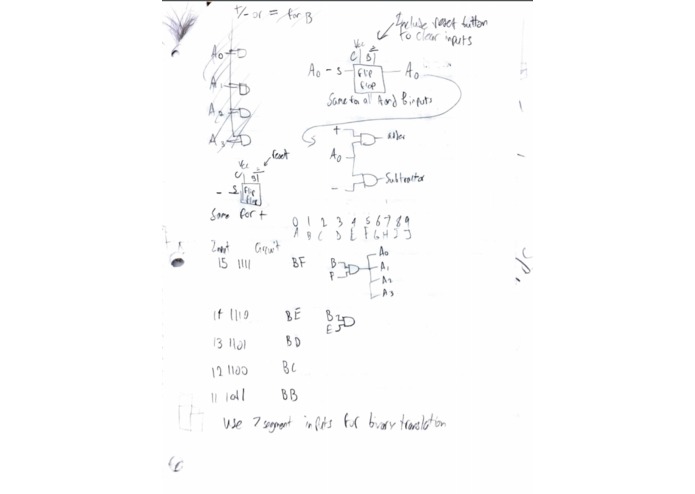 +/- or = for B
Include reset button
to clear inputs
A0
A1
A2
A3
Vcc
C
A0 - S
Flip
flop
A0
Same for all A and B inputs
+
A0
-
adder
Subtractor
reset
Vcc
- S
Flip
flop
Same for +
0 1 2 3 4 5 6 7 8 9
A B C D E F G H I J
Input Circuit
15 1111 BF
B
F
A0
A1
A2
A3
14 1110 BE
B
E
13 1101 BD
12 1100 BC
11 1011 BB
Use 7 segment inputs for binary translation